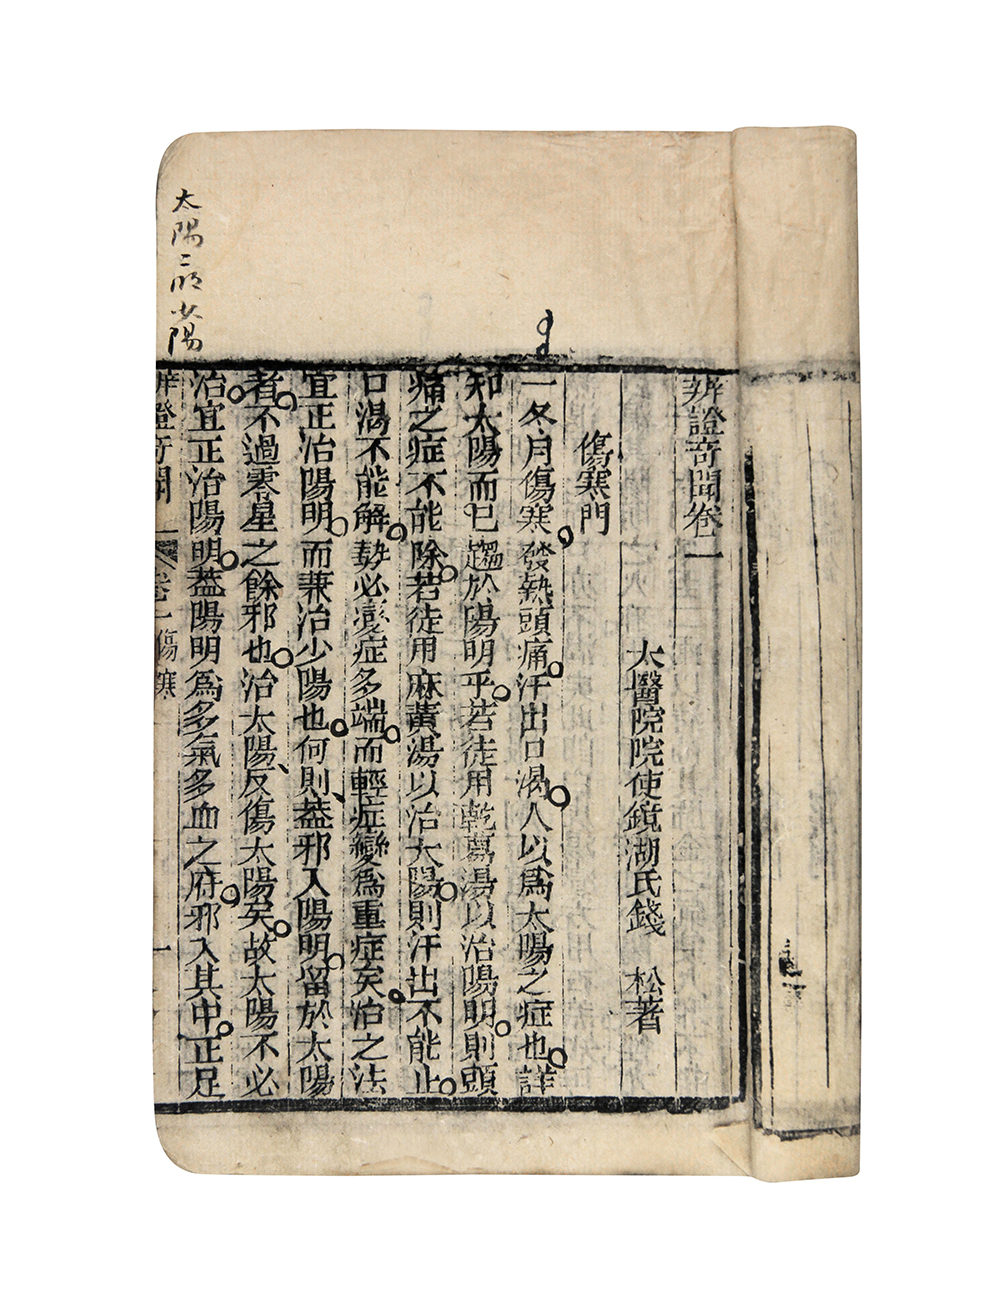 辨證奇聞卷一
太醫院院使鏡湖氏錢　松著
傷寒門
一冬月傷寒發熱頭痛汗出口渴人以爲太陽之症也詳
知太陽而已趨於陽明乎若徒用乾葛湯以治陽明則頭
痛之症不能除若徒用麻黃湯以治太陽則汗出不能止
口渴不能解勢必變症多端而輕症變爲重症矣治之法
宜正治陽明而兼治少陽也何則葢邪入陽明留於太陽
者不過零星之餘邪也治太陽反傷太陽矣故太陽不必
治宜正治陽明葢陽明爲多氣多血之府邪入其中正足
辨證奇聞　卷一傷寒　一
太陽
少陽